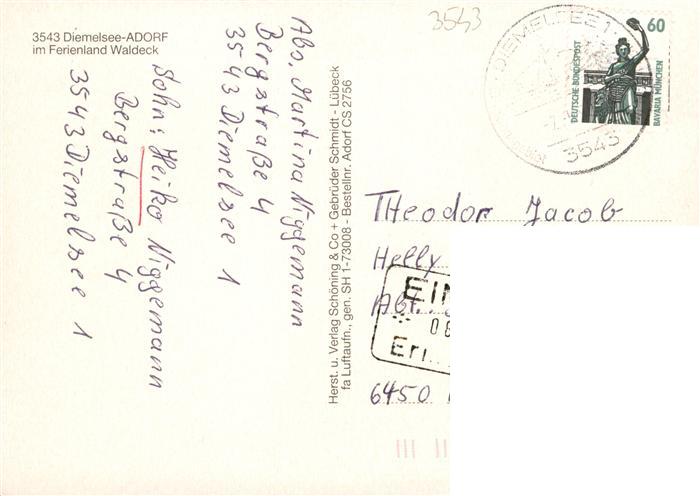 3543 Diemelsee-ADORF
im Ferienland Waldeck
3543
Abs, Martina Niggemann
Bergstraße 4
3543 Diemelsee 1
Sohn: Heiko Niggemann
Bergstraße 4
3543 Diemelsee 1
Herst. u. Verlag Schöning & Co + Gebrüder Schmidt - Lübeck
fa Luftaufn., gen. SH 1-73008 - Bestellnr. Adorf CS 2756
DIEMELSEE 1
3543
60
DEUTSCHE BUNDESPOST
BAVARIA MÜNCHEN
THeodor Jacob
Helly
Abt.
6450
EIN
08
Eri..